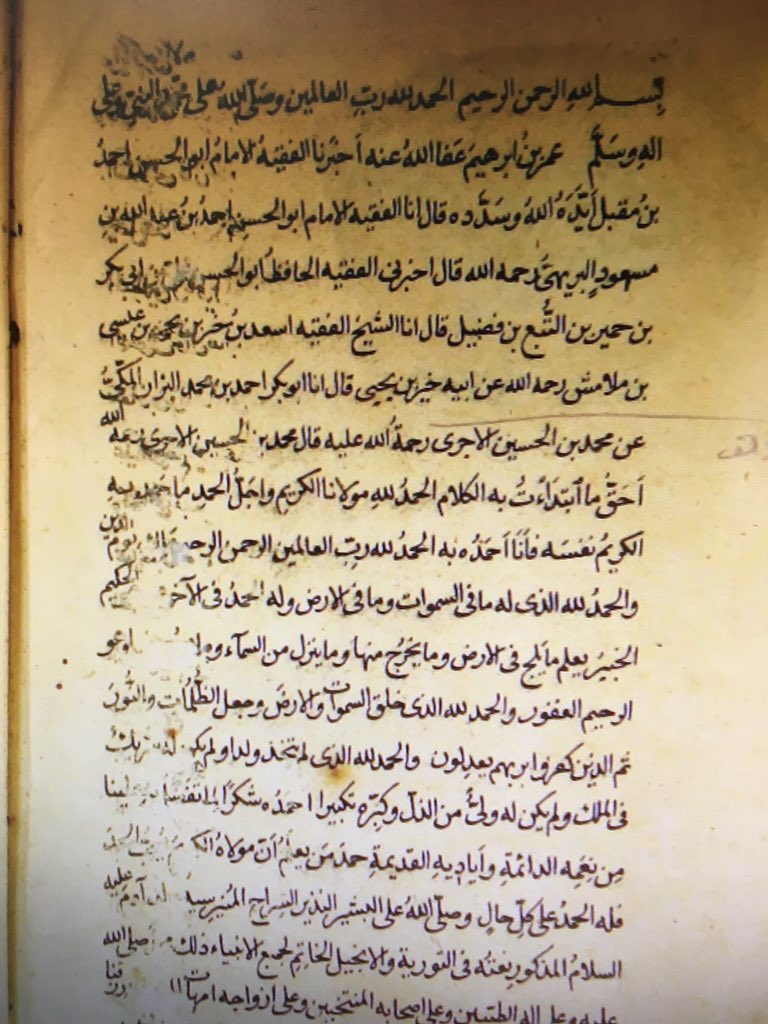 بسم الله الرحمن الرحيم الحمد لله رب العالمين وصلى الله على محمد النبي وعلى
اله وسلم عمر بن ابرهيم عفا الله عنه أخبرنا الفقيه الامام ابو الحسن احمد
بن مقبل أيَّدَهُ اللهُ وسَدَّده قال انا الفقيه الامام ابو الحسن احمد بن عبد الله بن
مسعود البريهي رحمه الله قال اخبرني الفقيه الحافظ ابو الحسن بن ابي بكر
بن حمير بن التُّبع بن فضيل قال انا الشيخ الفقيه اسعد بن خير بن يحيى بن عيسى
بن ملامش رحمه الله عن ابيه خير بن يحيى قال انا ابو بكر احمد بن محمد البزار المكيُّ
عن محمد بن الحسين الاجرى رحمةُ الله عليه قال محمد بن الحسين الاجرى رحمه الله
أَحَقُّ ما ابتَدَأتُ به الكلام الحمدُ للهِ مولانا الكريم واجَلُّ الحمدِ ما حمد به
الكريمُ نفسَه فأنَا أحمَدُه به الحمدُ لله ربِّ العالمين الرحمن الرحيم مالك يوم الدين
والحمدُ لله الذى له ما فى السموات وما فى الارض وله الحمدُ فى الآخرة الحكيم
الخبيرُ يعلم ما يلج فى الارض وما يخرُج منها وما ينزل من السمآء وهو
الرحيم الغفور والحمد لله الذى خلق السموات والارضَ وجعل الظُّلُمات والنُّورَ
ثم الذين كفروا بربهم يعدِلون والحمد لله الذى لم يتخذ ولدا ولم يكن له شريك
فى الملك ولم يكن له ولىٌّ من الذل وكبِّره تكبيرا احمدُه شكرًا
مِن نِعَمِه الدائمةِ وأياديهِ القديمةِ حمدَ مَن يعلَمُ أنّ مولاهُ الكريم يحب الحمد
فله الحمدُ على كلِّ حالٍ وصلّى اللهُ على البشير النذير السراج المُنير سيد آدم عليه
السلامُ المذكورِ نعتُه فى التورية والانجيل الخاتِمِ لجميع الانبياء ذلك صلى الله
عليه وعلى اله الطيبين وعلى اصحابه المنتخبين وعلى ازواجه امهات